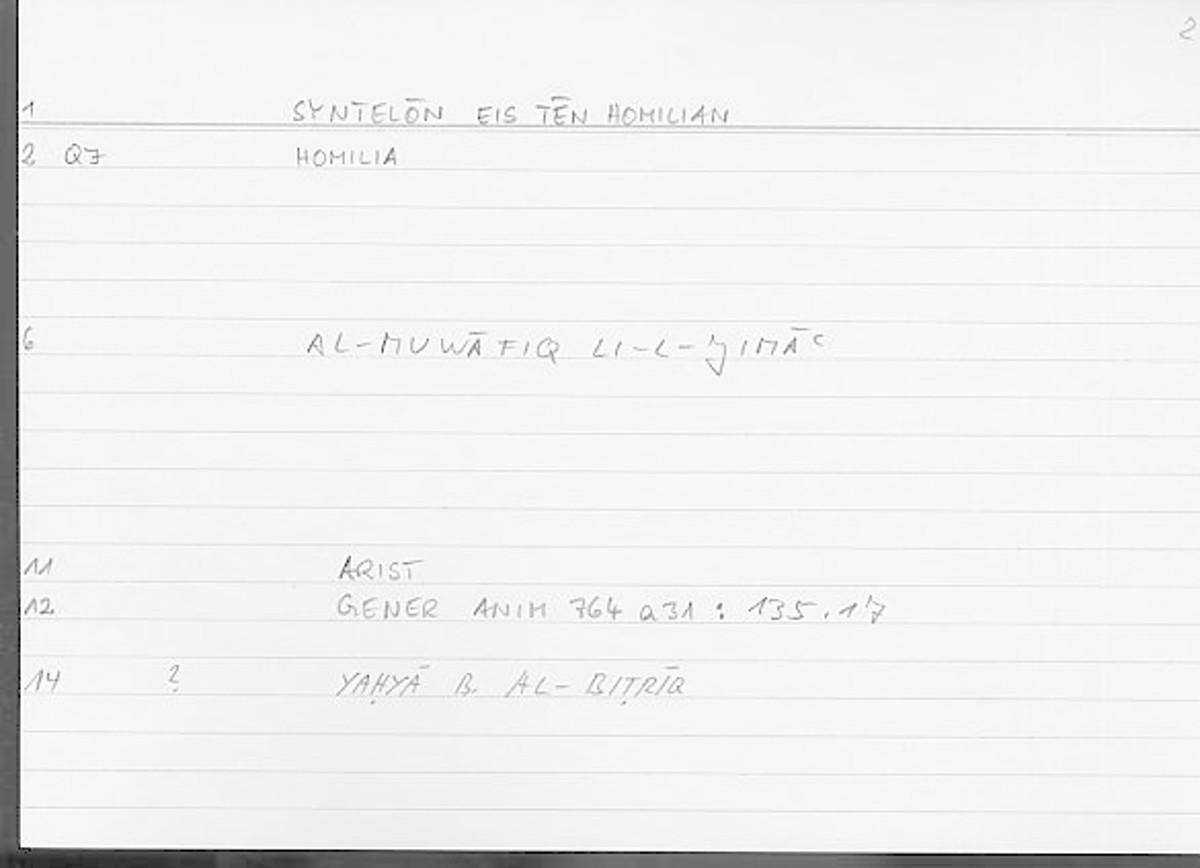 2
1 SYNTELŌN EIS TĒN HOMILIAN
2 Q7 HOMILIA
6 AL-MUWĀFIQ LI-L-ǦIMĀʿ
11 ARIST
12 GENER ANIM 764 a31 : 135.17
14 ? YAḤYĀ B. AL-BIṬRĪQ